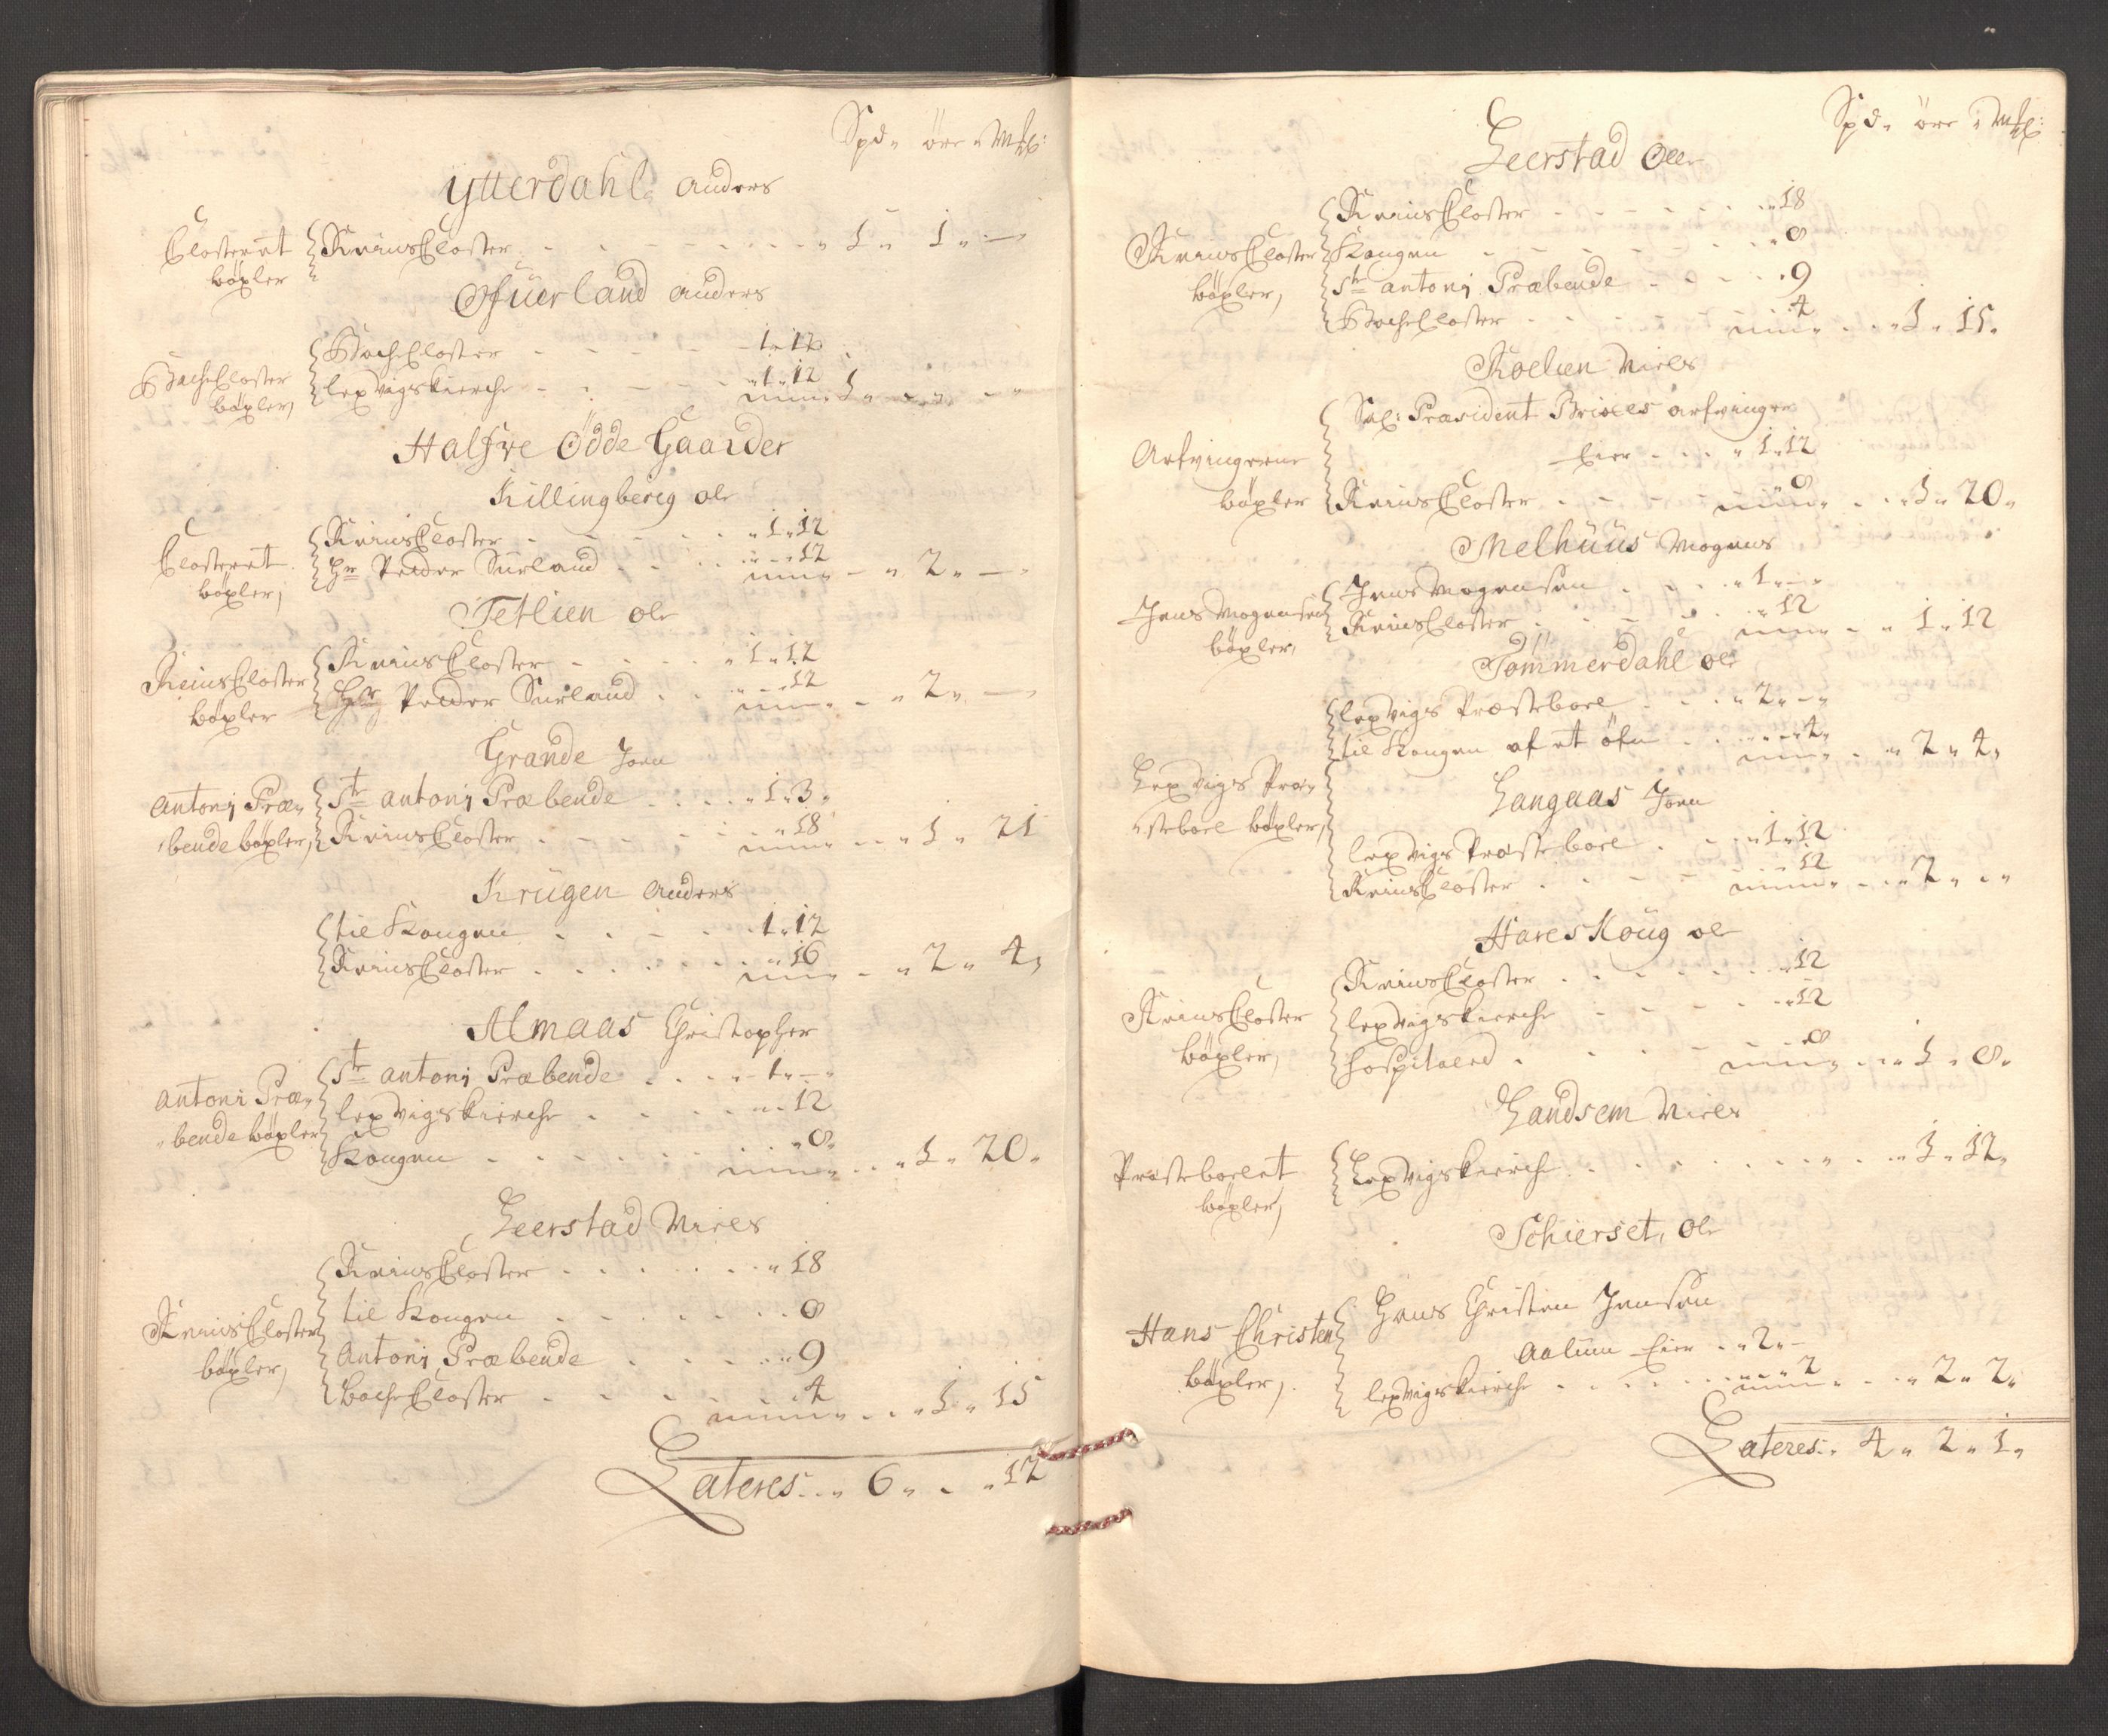 Spd„ öre „ Mkl:
Ytterdahl anders
Closteret böxler
ReinsCloster „ 1 „ 1 „ —
Ofuerland anders
BacheCloster böxler,
BacheCloster 1 „ 12
lexvigs kierche „ 1 „ 12
„ 3 „
Halfve Ödde Gaarder
Killingberg ole
Closteret böxler,
ReinsCloster „ 1 „ 12
Hr Peder Surland „ 12
„ 2 „ —
Tetlien ole
ReinsCloster böxler
ReinsCloster „ 1 „ 12
Hr Peder Surland „ 12
„ 2 „ —
Grande Joen
Antoni Præ„
„bende böxler,
Ste antoni Præbende „ 1 „ 3 „
ReinsCloster „ 18
„ 1 „ 21
Krügen anders
til Kongen 1 „ 12
ReinsCloster „ 16
„ 2 „ 4 „
Almaas Christopher
Antoni Præ„
„bende böxler
Ste antoni Præbende „ 1 „ —
lexvigs kierche „ 12
Kongen „ 8 „
„ 1 „ 20 „
Leerstad Niels
ReinsCloster böxler,
ReinsCloster „ 18
til Kongen 8
Antoni Præbende „ 9
bacheCloster 4
„ 1 „ 15
Lateres „ 6 „ „ 12
Spd„ öre „ Mkl:
Leerstad Ole
ReinsCloster böxler,
ReinsCloster „ 18
Kongen „ 8
Ste antoni Præbende „ 9
BacheCloster 4
„ 1 „ 15 „
Koelien Niels
Arfvingerne böxler
Sal: Præsident Brixes arfvinger
Eier „ 1 „ 12
ReinsCloster „ 8
„ 1 „ 20 „
Melhuus Mogens
Jens Mogensen böxler,
Jens Mogensen „ 1 „ —
ReinsCloster „ 12
„ 1 „ 12
Tömmerdahl ole
Lexvigs Præ„
„steboel böxler,
lexvigs Præsteboel „ 2 „ — „
til Kongen af et „ 4 „
„ 2 „ 4 „
Langaas Joen
lexvigs Præsteboel „ 1 „ 12
ReinsCloster „ 12
„ 2 „ „
Hareskoug ole
ReinsCloster böxler,
ReinsCloster „ 12
lexvigs kierche „ 12
hospitaled „ 8
„ 1 „ 8 „
Landsem Niels
Præsteboelet böxler,
Lexvigs kierche „ 1 „ 12 „
Schierset, ole
Hans Christen böxler,
Hans Christen Jensen
Aalum Eier „ 2 „ —
lexvigs kierche „ 2
„ 2 „ 2 „
Lateres „ 4 „ 2 „ 1 „